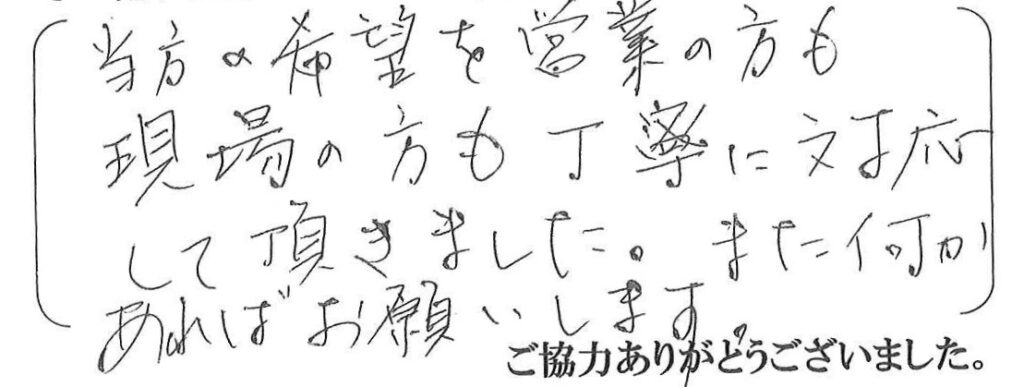 当方の希望を営業の方も
現場の方も丁寧に対応
して頂きました。また何か
あればお願いします。
ご協力ありがとうございました。